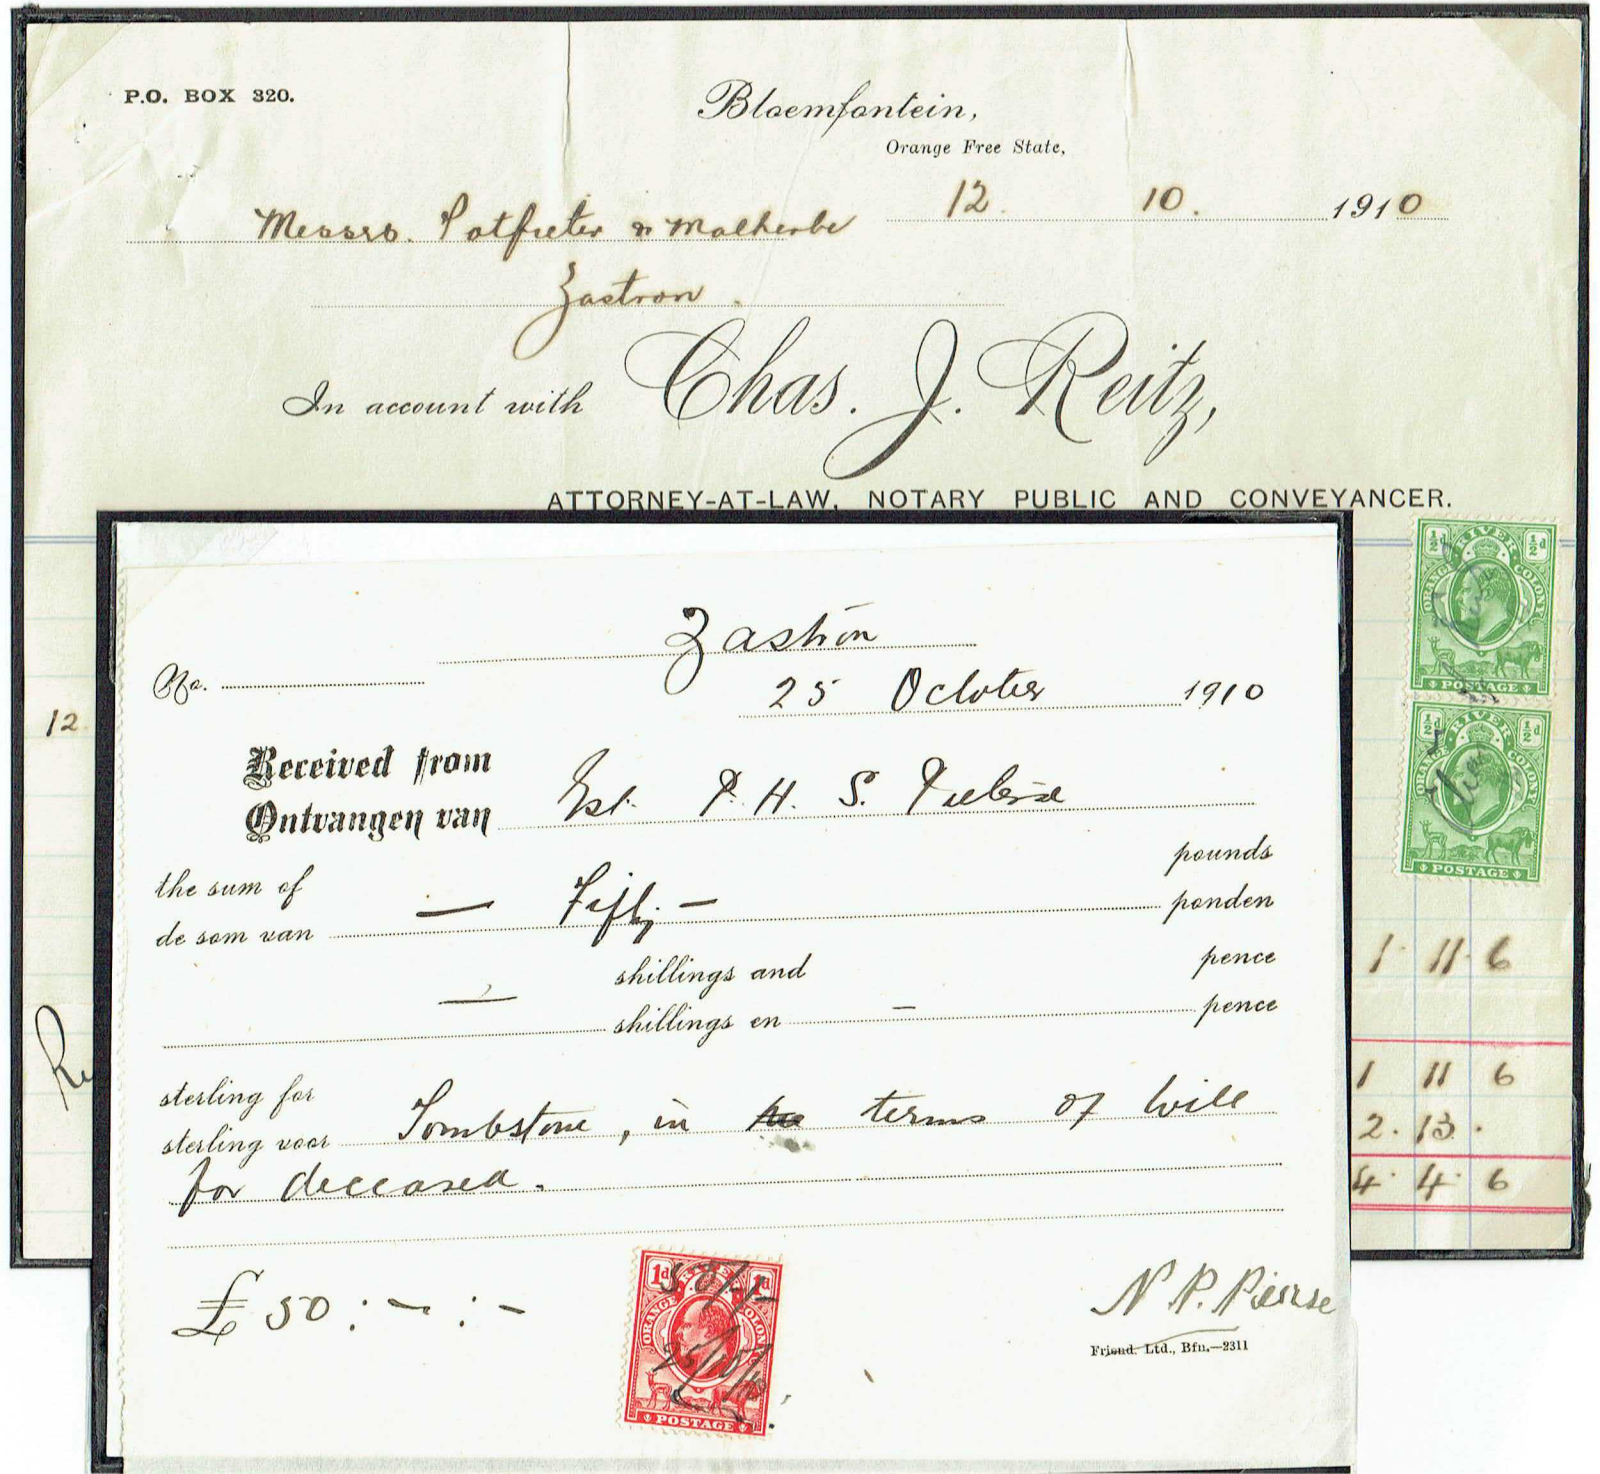 P.O. BOX 320.
Bloemfontein,
Orange Free State,
12. 10. 1910
Messrs. Potgieter & Malherbe
Zastron.
In account with Chas. J. Reitz,
ATTORNEY-AT-LAW, NOTARY PUBLIC AND CONVEYANCER.
½d RIVER ½d
ORANGE COLONY
POSTAGE
½d RIVER ½d
ORANGE COLONY
POSTAGE
12.
1. 11. 6
1 11 6
2. 13.
4. 4. 6
Zastron
No.
25 October 1910
Received from
Ontvangen van
Est. P. H. S. Pieterse
the sum of pounds
de som van — Fifty — ponden
shillings and pence
— shillings en — pence
sterling for
sterling voor Tombstone, in terms of will
for deceased.
£ 50 : — : —
1d RIVER 1d
ORANGE COLONY
POSTAGE
50/-/-
25/10/10
N. P. Pierse
Friend. Ltd., Bfn.—2311